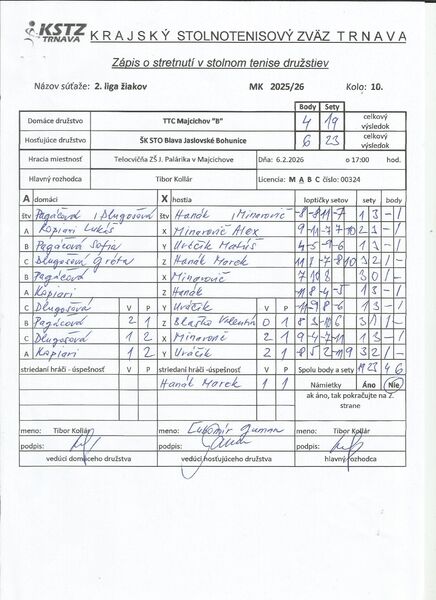 KSTZ
TRNAVA
KRAJSKÝ STOLNOTENISOVÝ ZVÄZ TRNAVA
Zápis o stretnutí v stolnom tenise družstiev
Názov súťaže: 2. liga žiakov MK 2025/26 Kolo: 10.
Body Sety
Domáce družstvo TTC Majcichov "B" 4 19 celkový výsledok
Hosťujúce družstvo ŠK STO Blava Jaslovské Bohunice 6 23 celkový výsledok
Hracia miestnosť Telocvičňa ZŠ J. Palárika v Majcichove Dňa: 6.2.2026 o 17:00 hod.
Hlavný rozhodca Tibor Kollár Licencia: M A B C číslo: 00324
A domáci X hostia loptičky setov sety body
štv Pagáčová, Dlugošová štv Hanák, Minarovič 1 3 - /
A Kopiari Lukáš X Minarovič Alex
B Pagáčová Sofia Y Uráčik Matúš 1 3 - /
C Dlugošová Gréta Z Hanák Marek
B Pagáčová X Minarovič 7 10 8 3 0 / -
A Kopiari Z Hanák 1 3 - /
C Dlugošová V P Y Uráčik V P 1 3 - /
B Pagáčová 2 1 Z Blaško Valentín 0 1 3 1 / -
C Dlugošová 1 2 X Minarovič 2 1 1 3 - /
A Kopiari 1 2 Y Uráčik 2 1 3 2 / -
striedaní hráči - úspešnosť striedaní hráči - úspešnosť Spolu body a sety 19 23 4 6
Hanák Marek 1 1 Námietky Áno Nie
ak áno, tak pokračujte na 2. strane
meno: Tibor Kollár meno: Ľubomír meno: Tibor Kollár
podpis: podpis: podpis:
vedúci domáceho družstva vedúci hosťujúceho družstva hlavný rozhodca